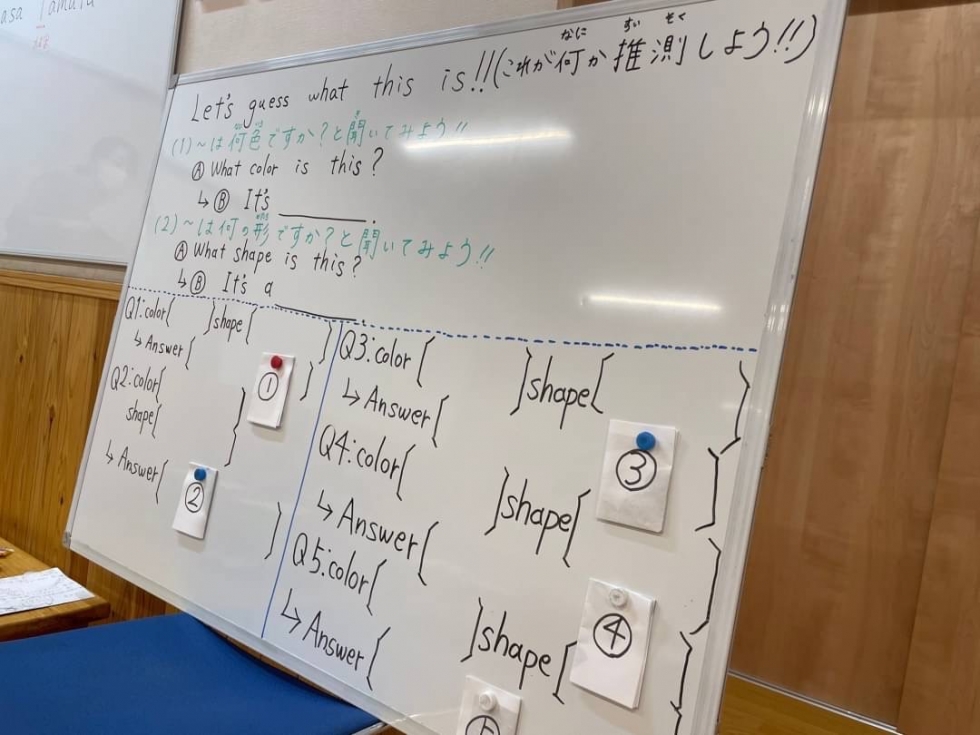 Let's guess what this is!!(これが何か推測しよう!!)
なに すい そく
(1)~は何色ですか?と聞いてみよう!!
Ⓐ What color is this?
↳Ⓑ It's ________.
(2)~は何の形ですか?と聞いてみよう!!
Ⓐ What shape is this?
↳Ⓑ It's a ________
Q1:color[ ]shape[ ]
↳Answer[ ]
①
Q2:color[
shape[ ]
↳Answer[ ]
②
Q3:color[ ]shape[ ]
↳Answer[ ]
③
Q4:color[ ]shape[ ]
↳Answer[ ]
④
Q5:color[ ]shape[ ]
↳Answer[ ]
⑤